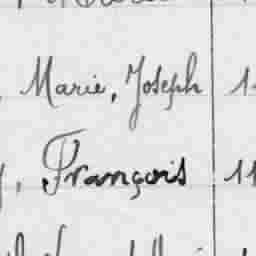 , Marie, Joseph 1
, François 11